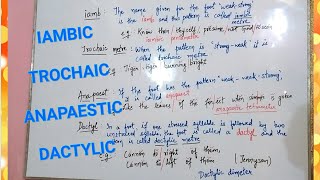 iamb: The name given for the foot "weak-strong"
is the iamb and this pattern is called iambic
metre
IAMBIC
e.g. Know then thyself; presume not God to scan
iambic pentametre
Trochaic metre: When the pattern is "strong-weak" it is
called trochaic metre
TROCHAIC
e.g. Tiger! Tiger! burning bright
Anapaest: If the foot has the pattern "weak-weak-strong",
it is called anapaest
ANAPAESTIC
the leaves of the forest when summer is green
(anapaestic tetrametre)
Dactyl: In a foot, if one stressed syllable is followed by two
unstressed syllables, the foot is called a dactyl and the
is called dactylic metre
DACTYLIC
e.g. Cannon to right of them,
Cannon to left of them (Tennyson)
Dactylic dimeter